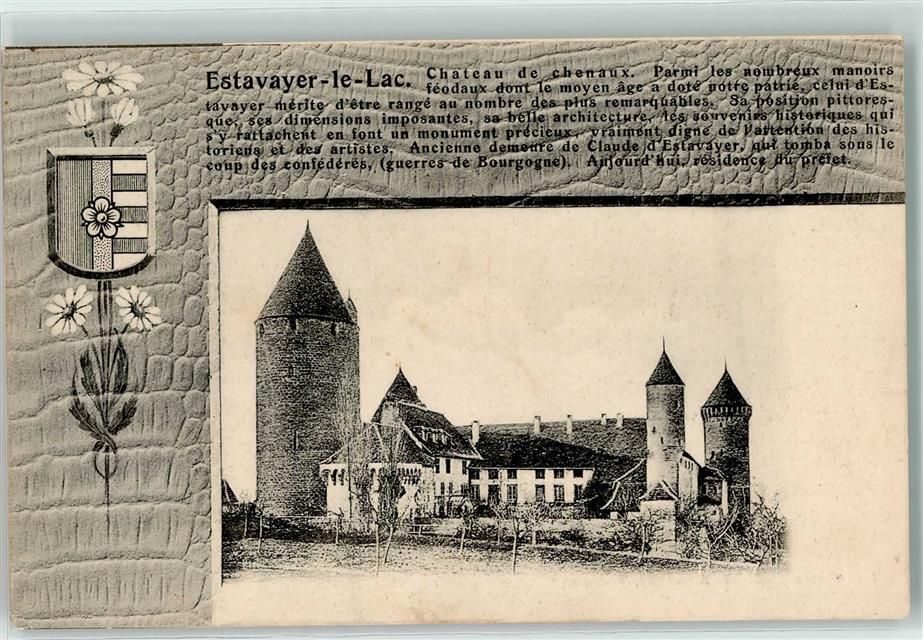 Estavayer-le-Lac. Chateau de chenaux. Parmi les nombreux manoirs
féodaux dont le moyen âge a doté notre patrie, celui d'Es-
tavayer mérite d'être rangé au nombre des plus remarquables. Sa position pittores-
que, ses dimensions imposantes, sa belle architecture, les souvenirs historiques qui
s'y rattachent en font un monument précieux, vraiment digne de l'attention des his-
toriens et des artistes. Ancienne demeure de Claude d'Estavayer, qui tomba sous le
coup des confédérés, (guerres de Bourgogne). Aujourd'hui, résidence du préfet.